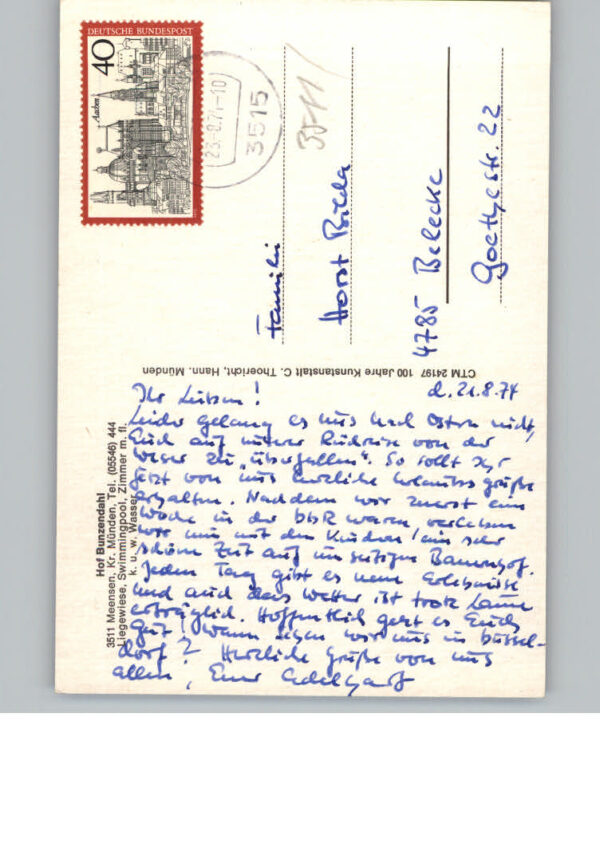 DEUTSCHE BUNDESPOST
40
Aachen
3515
3511/
Familie
Horst Bilda
4785 Belecke
Goethestr. 22
CTM 24197 100 Jahre Kunstanstalt C. Thoericht, Hann. Münden
Hof Bunzendahl
3511 Meensen, Kr. Münden, Tel. (05546) 444
Liegewiese, Swimmingpool, Zimmer m. fl.
k. u. w. Wasser
d. 21.8.74
Ihr Lieben!
Leider gelang es uns nach Ostern nicht,
Euch auf unserer Rückreise von der
Weser zu "überfallen". So sollt Ihr
jetzt von uns herzliche Urlaubsgrüße
erhalten. Nachdem wir zuerst eine
Woche in der DDR waren, verleben
wir nun mit den Kindern eine sehr
schöne Zeit auf Bauernhof.
Jeden Tag gibt es neue Erlebnisse
und auch das Wetter ist trotz Laune
erträglich. Hoffentlich geht es Euch
gut! Wann sehen wir uns in Düssel-
dorf? Herzliche Grüße von uns
allen, Eure Edelgard